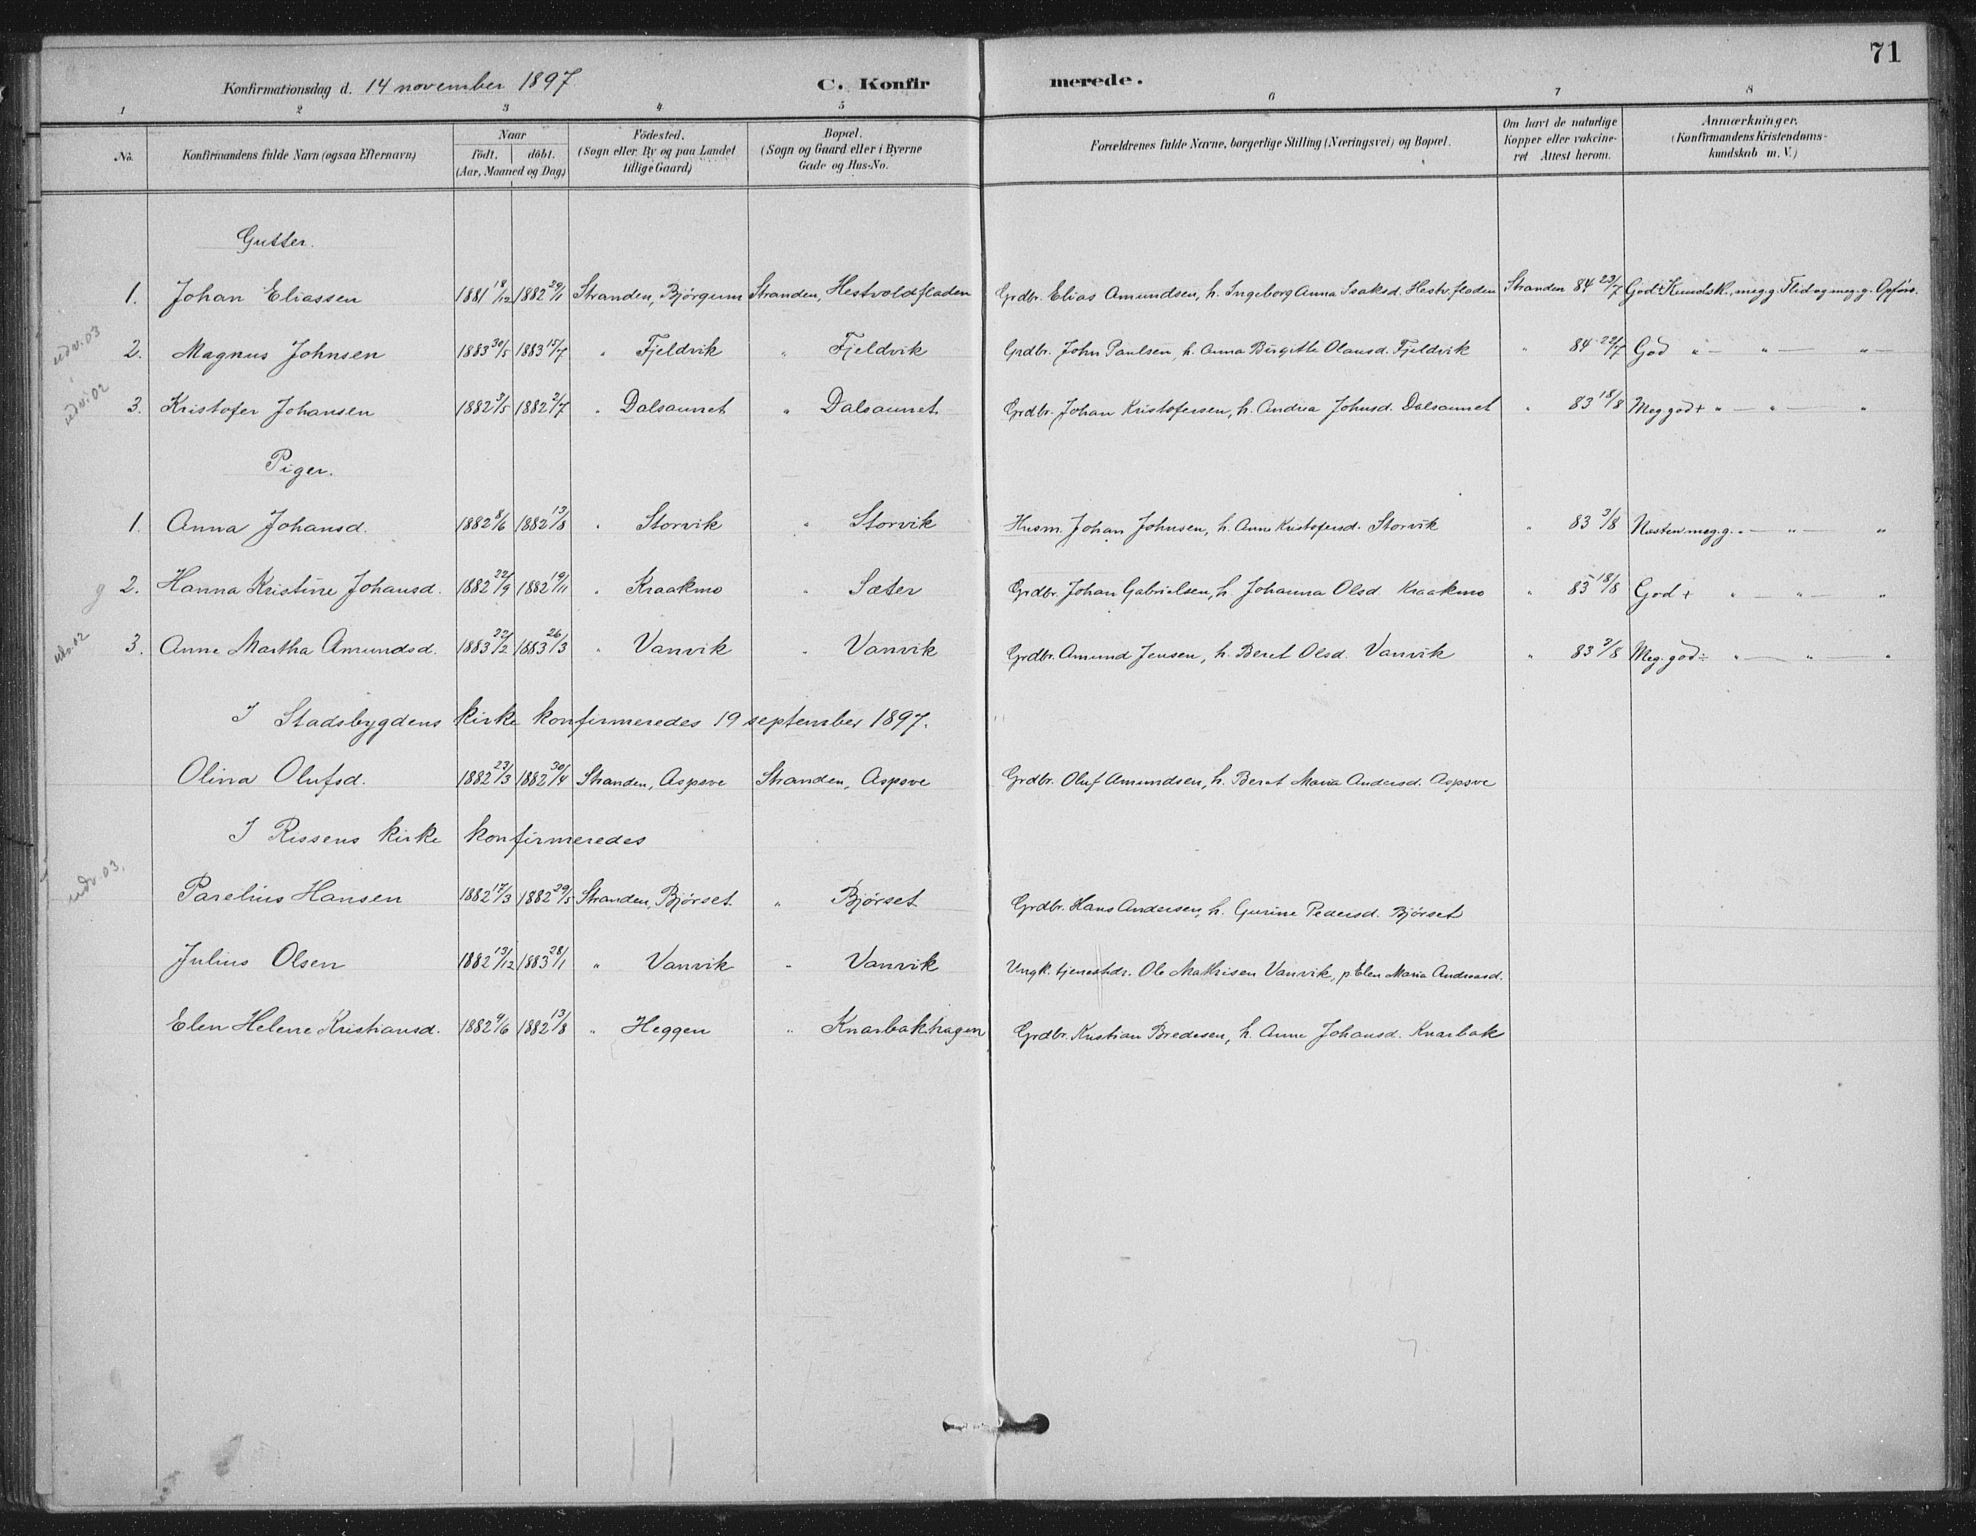 71
Konfirmationsdag d. 14 november 1897 C. Konfirmerede.
1 2 3 4 5 6 7 8
No. Konfirmandens fulde Navn (ogsaa Efternavn) Naar födt. döbt. (Aar, Maaned og Dag) Födested. (Sogn eller By og paa Landet tillige Gaard) Bopæl. (Sogn og Gaard eller i Byerne Gade og Hus-No. Forældrenes fulde Navne, borgerlige Stilling (Næringsvei) og Bopæl. Om havt de naturlige Kopper eller vakcineret Attest herom. Anmærkninger. (Konfirmandens Kristendomskundskab m. V.)
Gutter.
1. Johan Eliassen 1881 18/12 1882 29/1 Stranden, Bjørgum Stranden, Hestvoldfladen Grdbr. Elias Amundsen, h. Ingeborg Anna Isaksd. Hestv.fladen Stranden 84 23/7 God+ Kundsk., meg.g. Flid og meg.g. Opførs.
udv. 03
2. Magnus Johnsen 1883 30/5 1883 15/7 " Fjeldvik " Fjeldvik Grdbr. John Paulsen, h. Anna Birgitte Olausd. Fjeldvik " 84 22/7 God " — " — " —
udv. 02
3. Kristofer Johansen 1882 3/5 1882 2/7 " Dalsaunet " Dalsaunet Grdbr. Johan Kristofersen, h. Andrea Johnsd. Dalsaunet " 83 18/8 Meg god+ " — " — "
Piger.
1. Anna Johansd. 1882 8/6 1882 13/8 " Storvik " Storvik Husm. Johan Johnsen, h. Anne Kristofersd. Storvik " 83 3/8 Næsten meg.g. " — " — "
g 2. Hanna Kristine Johansd. 1882 22/9 1882 19/11 " Kraakmo " Sæter Grdbr. Johan Gabrielsen, h. Johanna Olsd. Kraakmo " 85 18/8 God+ " — " — "
udv. 02
3. Anne Martha Amundsd. 1883 22/2 1883 26/3 " Vanvik " Vanvik Grdbr. Amund Jensen, h. Beret Olsd. Vanvik " 83 2/8 Meg. god÷ " — " — "
I Stadsbygdens kirke konfirmeredes 19 september 1897.
Olina Olufsd. 1882 23/3 1882 30/4 Stranden, Aspsve Stranden, Aspsve Grdbr. Oluf Amundsen, h. Beret Maria Andersd. Aspsve
I Rissens kirke konfirmeredes
udv. 03.
Parelius Hansen 1882 17/3 1882 29/5 Stranden, Bjørset " Bjørset Grdbr. Hans Andersen, h. Gurine Pedersd. Bjørset
Julius Olsen 1882 13/12 1883 28/1 " Vanvik " Vanvik Ungk. tjenestdr. Ole Mathisen Vanvik, p Elen Maria Andreasd.
Elen Helene Kristiansd. 1882 4/6 1882 13/8 " Heggen " Knarbakhagen Grdbr. Kristian Bredesen, h. Anne Johansd. Knarbak